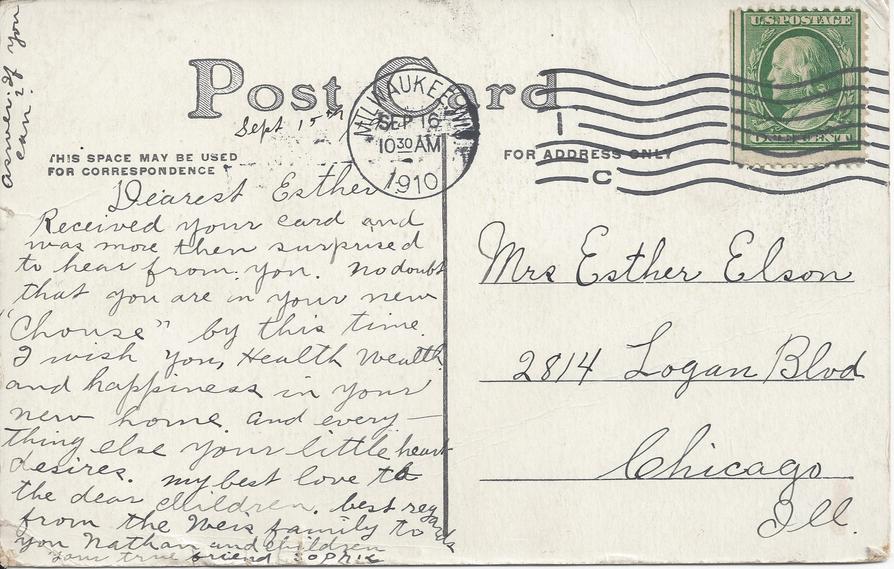 answer if you
can?
Post Card
Sept 15th
MILWAUKEE, WIS.
SEP 16
10 30 AM
1910
U.S. POSTAGE
ONE CENT
1
C
THIS SPACE MAY BE USED
FOR CORRESPONDENCE
FOR ADDRESS ONLY
Dearest Esther
Received your card and
was more then surprised
to hear from you. No doubt
that you are in your new
"Chouse" by this time.
I wish you, Health Wealth
and happiness in your
new home and every-
thing else your little heart
desires. my best love to
the dear children. best regards
from the Weis family to
you Nathan and children
your true friend Sophie
Mrs Esther Elson
2814 Logan Blvd
Chicago
Ill.